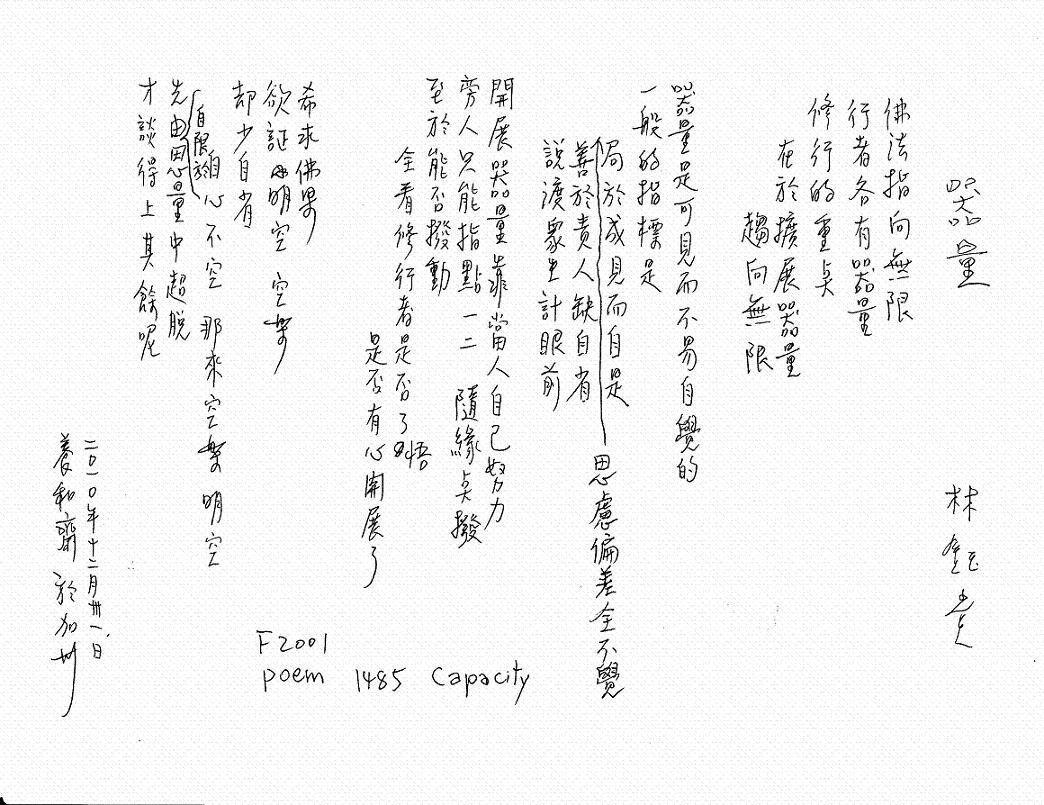 器量
林鈺堂
佛法指向無限
行者各有器量
修行的重奌
在於擴展器量
趨向無限
器量是可見而不易自覺的
一般的指標是
局於成見而自是
思慮偏差全不覺
善於責人缺自省
說渡眾生計眼前
開展器量靠當人自己努力
旁人只能指點一二 隨緣奌撥
至於能否撥動
全看修行者是否了悟
是否有心開展了
希求佛果
欲証明空 空樂
却少自省
自心不空 那來空樂 明空
先由自限於思量中超脫
才談得上其餘呢
二〇一〇年十二月卅一日
養和齋 於加州
F2001
poem 1485 Capacity